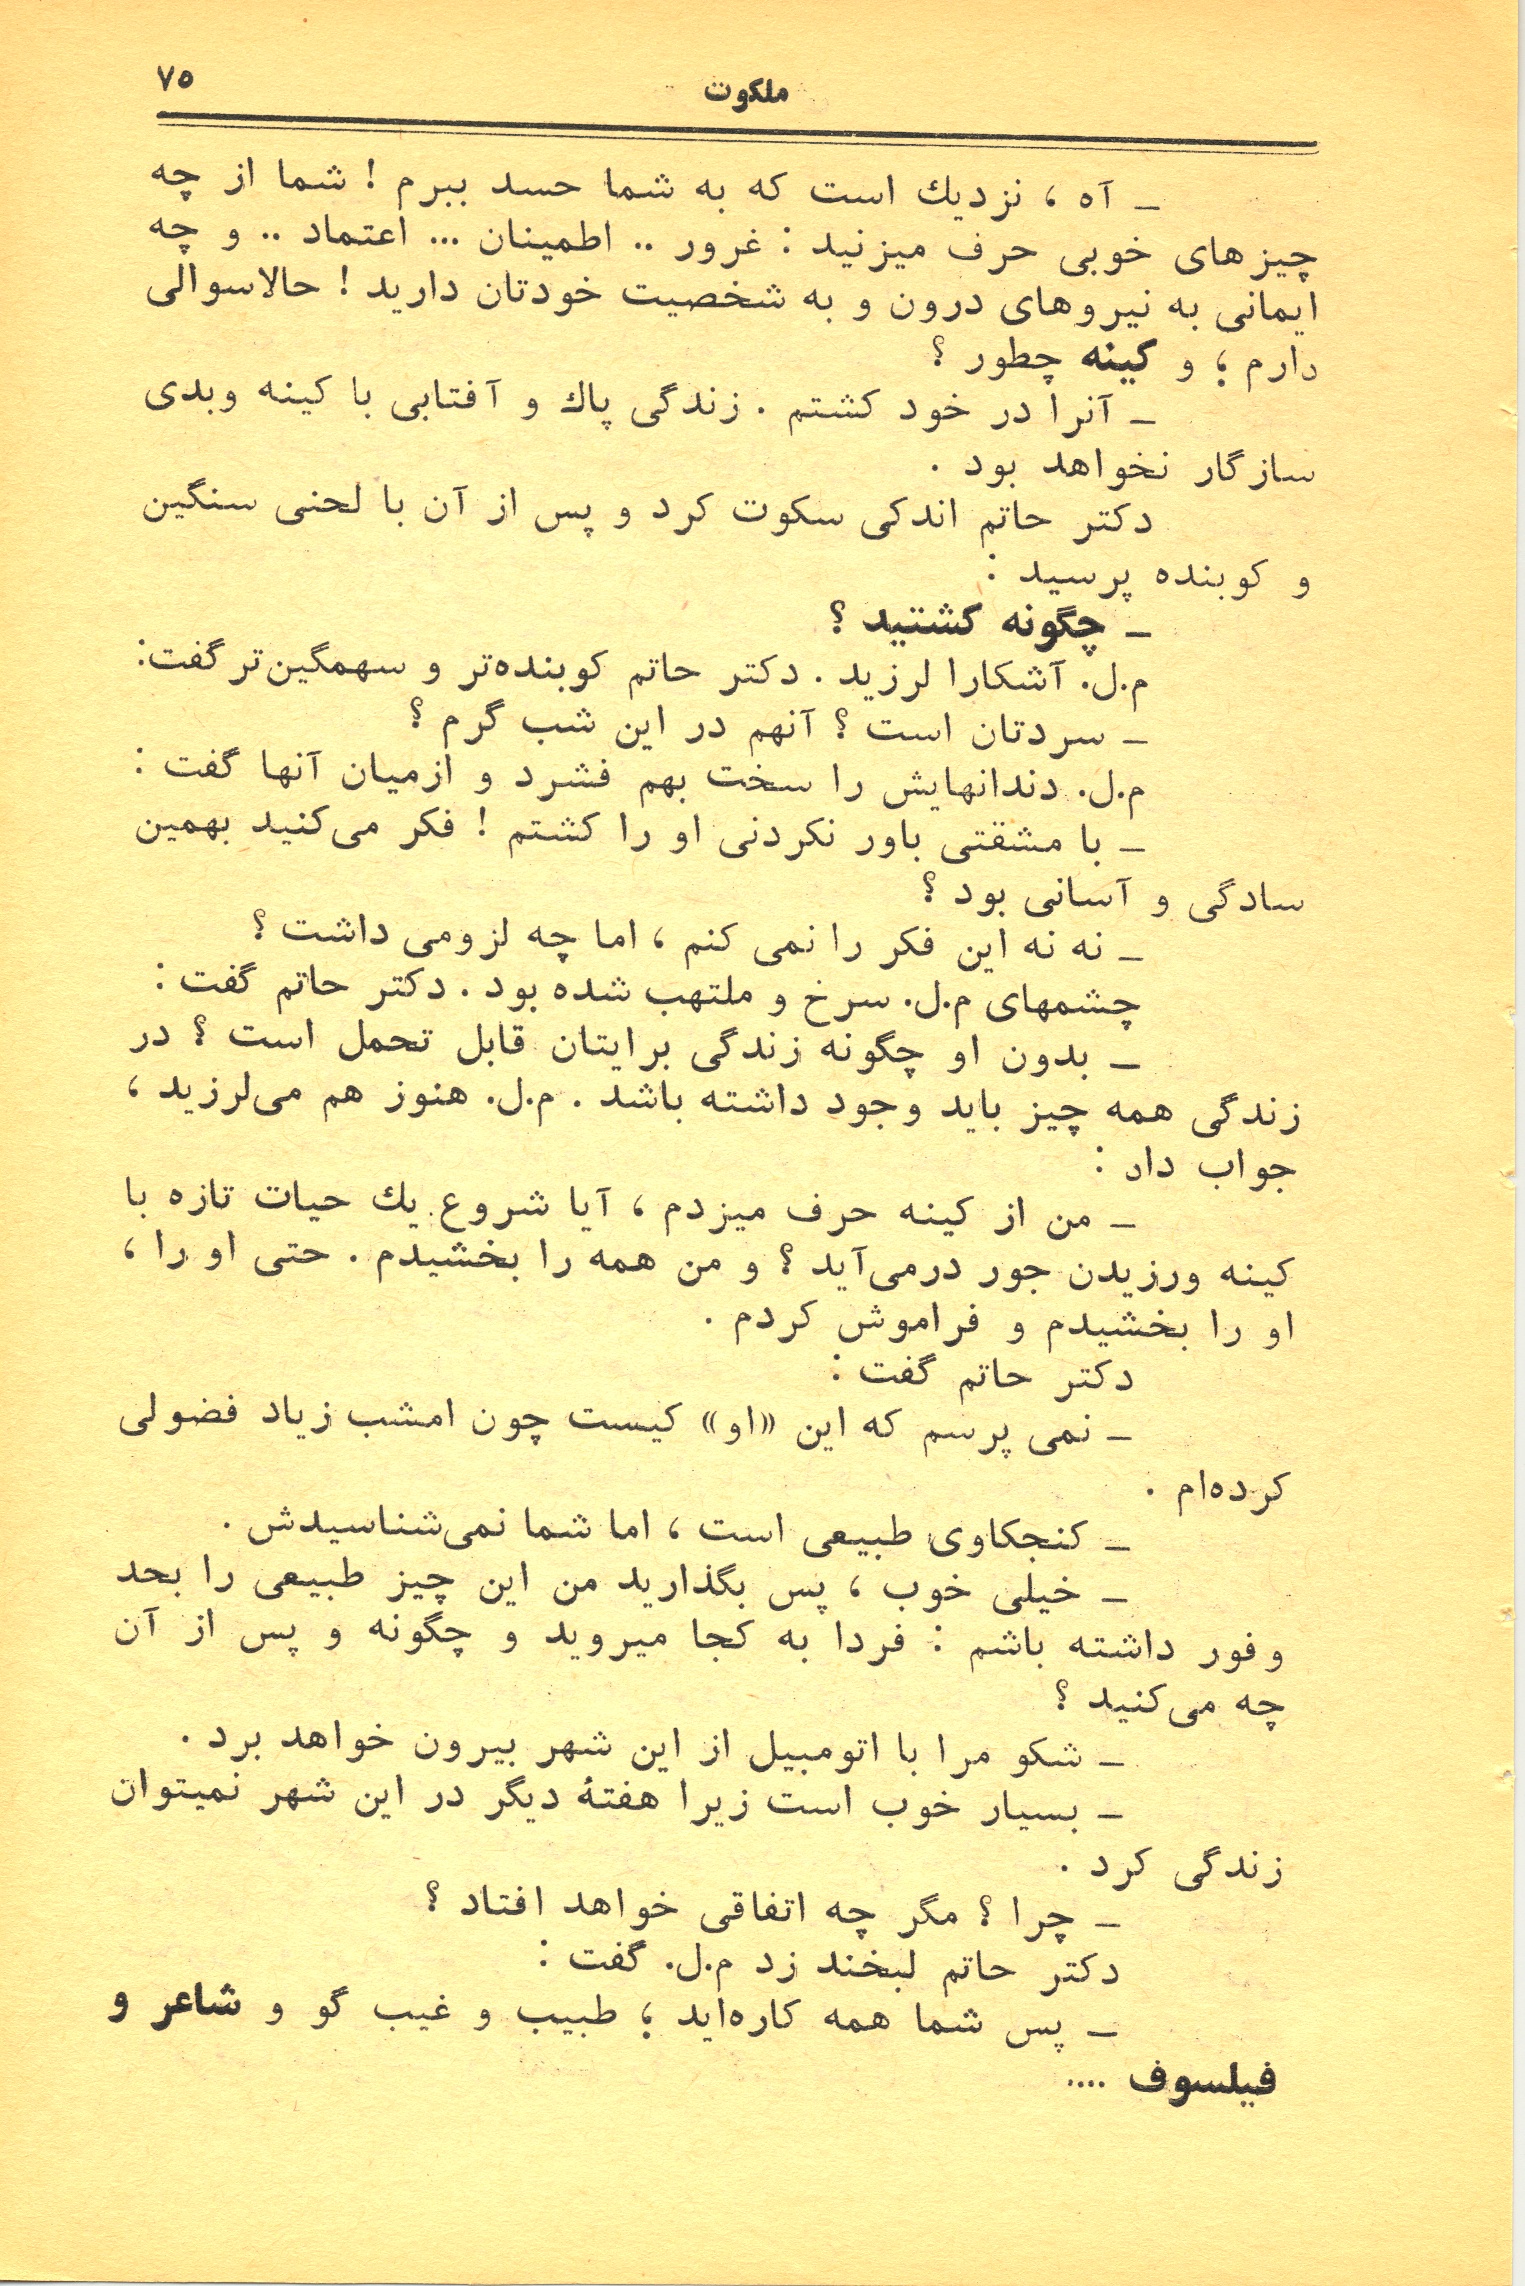 ۷۵
ملکوت
ـ آه ، نزدیك است که به شما حسد ببرم ! شما از چه
چیزهای خوبی حرف میزنید : غرور .. اطمینان ... اعتماد .. و چه
ایمانی به نیروهای درون و به شخصیت خودتان دارید ! حالاسوالی
دارم ؛ و کینه چطور ؟
ـ آنرا در خود کشتم . زندگی پاك و آفتابی با کینه وبدی
سازگار نخواهد بود .
دکتر حاتم اندکی سکوت کرد و پس از آن با لحنی سنگین
و کوبنده پرسید :
ـ چگونه کشتید ؟
م.ل. آشکارا لرزید . دکتر حاتم کوبنده‌تر و سهمگین‌تر گفت:
ـ سردتان است ؟ آنهم در این شب گرم ؟
م.ل. دندانهایش را سخت بهم فشرد و ازمیان آنها گفت :
ـ با مشقتی باور نکردنی او را کشتم ! فکر می‌کنید بهمین
سادگی و آسانی بود ؟
ـ نه نه این فکر را نمی کنم ، اما چه لزومی داشت ؟
چشمهای م.ل. سرخ و ملتهب شده بود . دکتر حاتم گفت :
ـ بدون او چگونه زندگی برایتان قابل تحمل است ؟ در
زندگی همه چیز باید وجود داشته باشد . م.ل. هنوز هم می‌لرزید ،
جواب داد :
ـ من از کینه حرف میزدم ، آیا شروع یك حیات تازه با
کینه ورزیدن جور درمی‌آید ؟ و من همه را بخشیدم . حتی او را ،
او را بخشیدم و فراموش کردم .
دکتر حاتم گفت :
ـ نمی پرسم که این «او» کیست چون امشب زیاد فضولی
کرده‌ام .
ـ کنجکاوی طبیعی است ، اما شما نمی‌شناسیدش .
ـ خیلی خوب ، پس بگذارید من این چیز طبیعی را بحد
وفور داشته باشم : فردا به کجا میروید و چگونه و پس از آن
چه می‌کنید ؟
ـ شکو مرا با اتومبیل از این شهر بیرون خواهد برد .
ـ بسیار خوب است زیرا هفتهٔ دیگر در این شهر نمیتوان
زندگی کرد .
ـ چرا ؟ مگر چه اتفاقی خواهد افتاد ؟
دکتر حاتم لبخند زد م.ل. گفت :
ـ پس شما همه کاره‌اید ؛ طبیب و غیب گو و شاعر و
فیلسوف ....